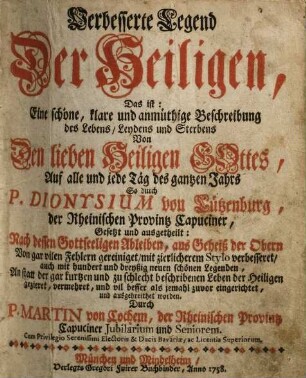 Verbesserte Legend
Der Heiligen,
Das ist:
Eine schöne, klare und anmüthige Beschreibung
des Lebens/ Leydens und Sterbens
Von
Den lieben Heiligen GOttes,
Auf alle und jede Täg des gantzen Jahrs
So durch
P. DIONYSIUM von Lützenburg,
der Rheinischen Provintz Capuciner,
Gesetzt und ausgetheilt:
Nach dessen Gottseeligen Ableiben, aus Geheiß der Obern
Von gar vilen Fehlern gereiniget/ mit zierlicherem Stylo verbesseret/
auch mit hundert und dreyßig neuen schönen Legenden,
An statt der gar kurtzen und zu schlecht beschribenen Leben der Heiligen
gezieret, vermehret, und vil besser als jemahl zuvor eingerichtet,
und ausgebreithet worden.
Durch
P. MARTIN von Cochem, der Rheinischen Provintz
Capuciner Jubilarium und Seniorem.
Cum Privilegio Serenissimi Electoris & Ducis Bavariæ, ac Licentia Superiorum.
München und Mindelheim/
Verlegts Gregori Buchbinder, Anno 1738.